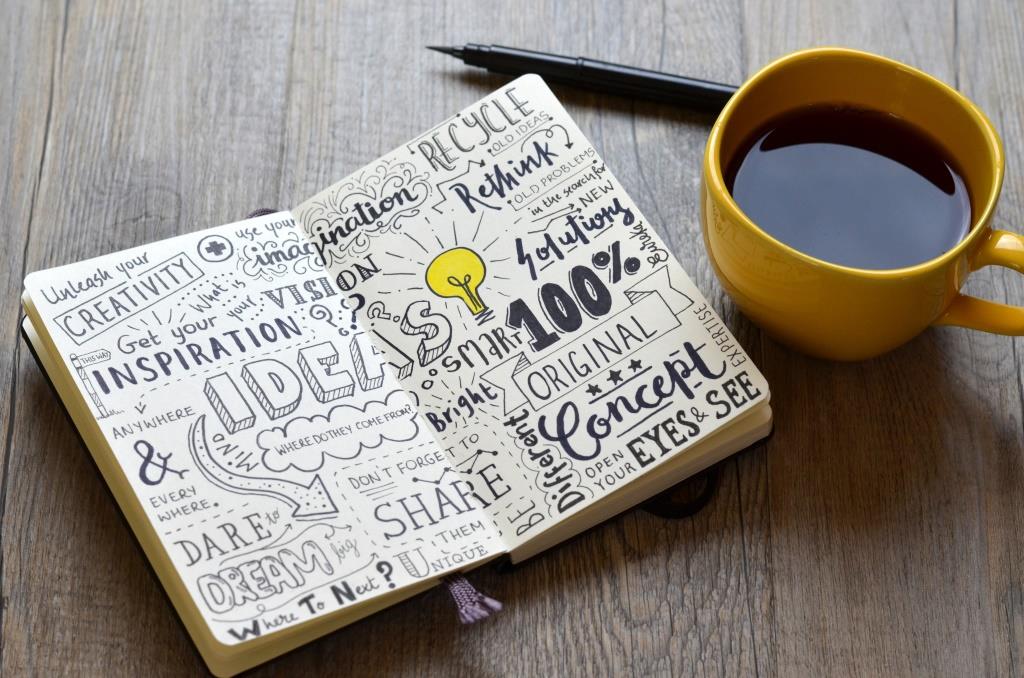 Unleash your
CREATIVITY
use your
imagination
Get your
INSPIRATION
What is
your
VISION
?
THIS WAY
ANYWHERE
&
EVERY
WHERE.
IDEAS
MIND
WHERE DO THEY COME FROM?
DON'T FORGET
TO
SHARE
THEM
DARE to
DREAM big
Where To Next?
RECYCLE
OLD IDEAS
Rethink
OLD PROBLEMS
in the search for
NEW
Solutions
100%
ORIGINAL
Concept
SMART
Bright
BE
Different
UNIQUE
OPEN
YOUR
EYES & SEE
EXPERTISE